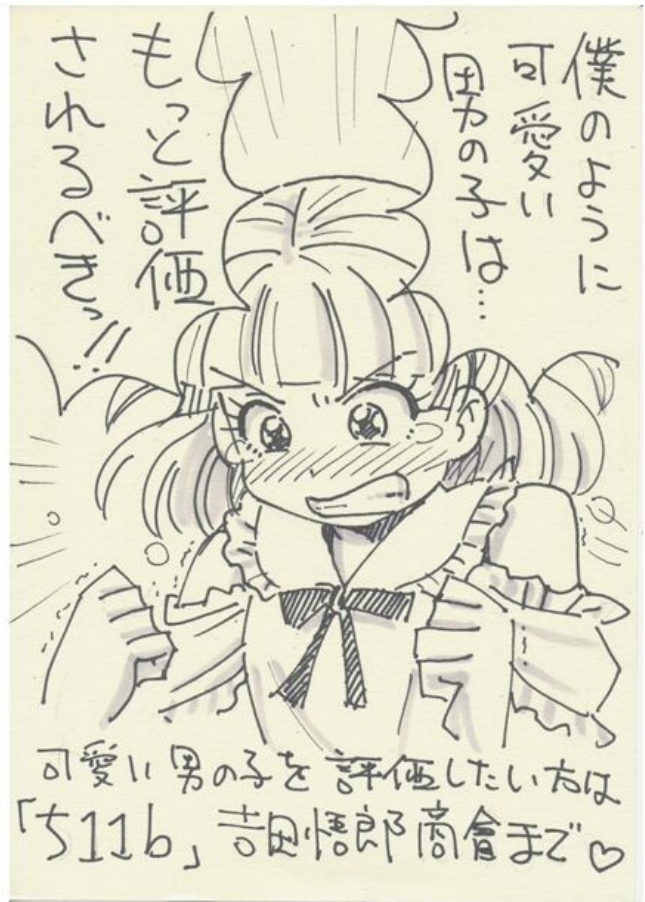 僕のように
可愛い
男の子は…
もっと評価
されるべきっ!!
可愛い男の子を評価したい方は
「ち11b」吉田悟郎商會まで♡